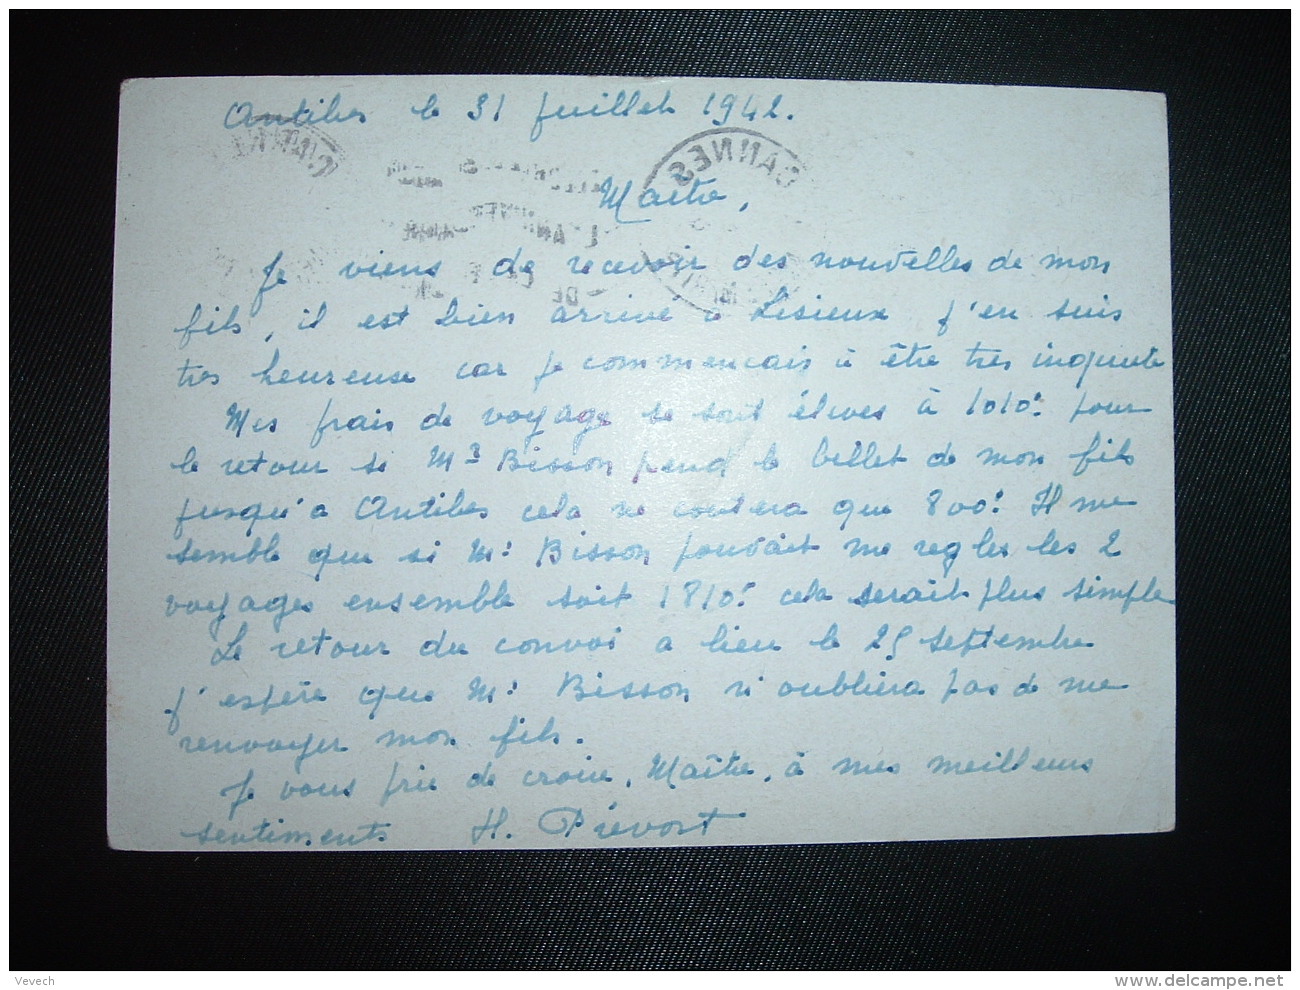 Antibes le 31 juillet 1942.
CANNES
Maître,
Je viens de recevoir des nouvelles de mon
fils, il est bien arrivé à Lisieux j'en suis
très heureuse car je commencais à être très inquiète
Mes frais de voyage se sont élevés à 1010F pour
le retour si Mr Bisson prend le billet de mon fils
jusqu'a Antibes cela ne coutera que 800F Il me
semble que si Mr Bisson pouvait me regler les 2
voyages ensemble soit 1810F cela serait plus simple
Le retour du convoi a lieu le 25 septembre
j'espère que Mr Bisson n'oubliera pas de me
renvoyer mon fils.
Je vous prie de croire, Maître, à mes meilleurs
sentiments H. Prévost
Vevech
www.delcampe.net